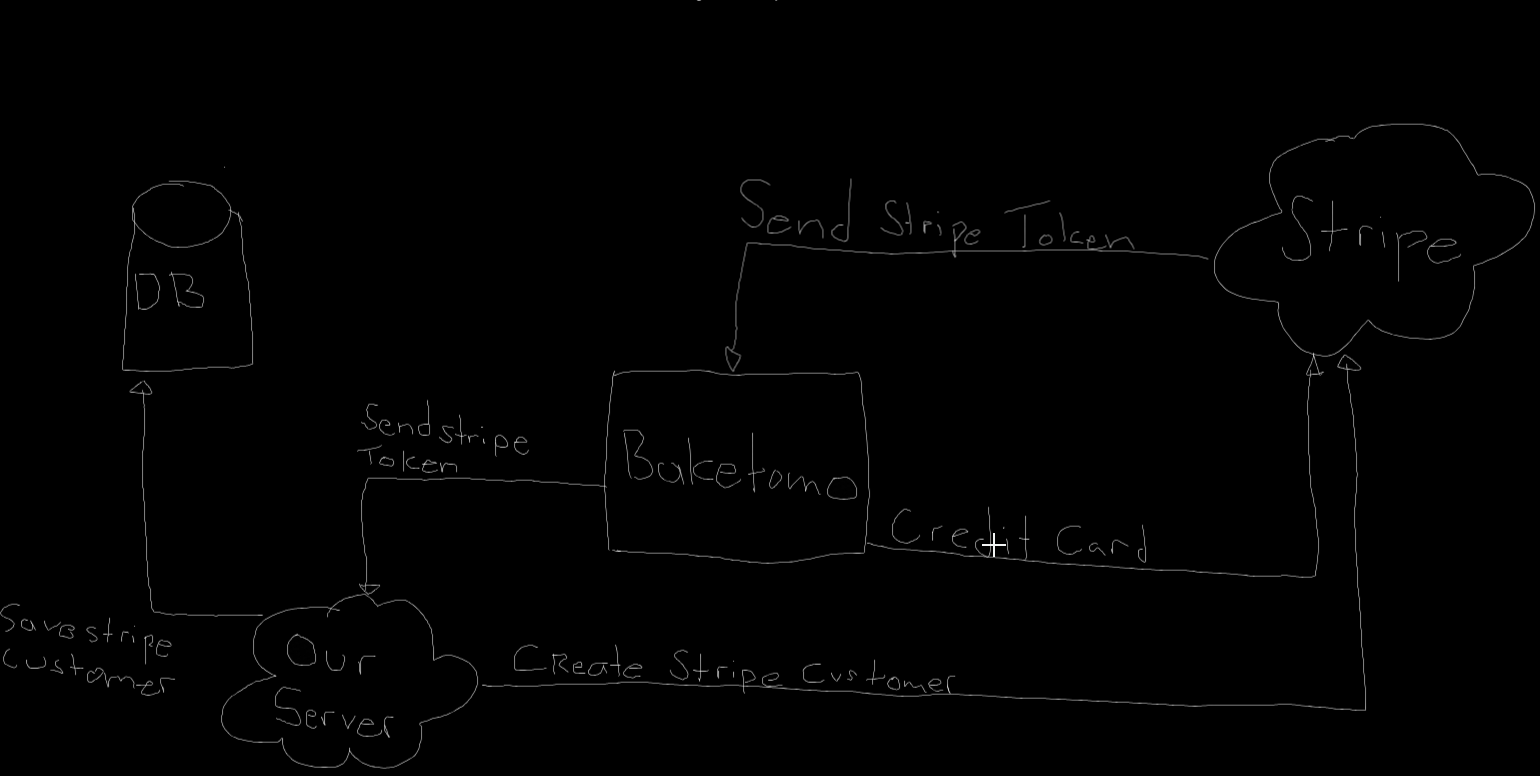 Send Stripe Token
Stripe
DB
Send stripe
Token
Baketomo
Credit Card
Save stripe
customer
Our
Server
Create Stripe Customer